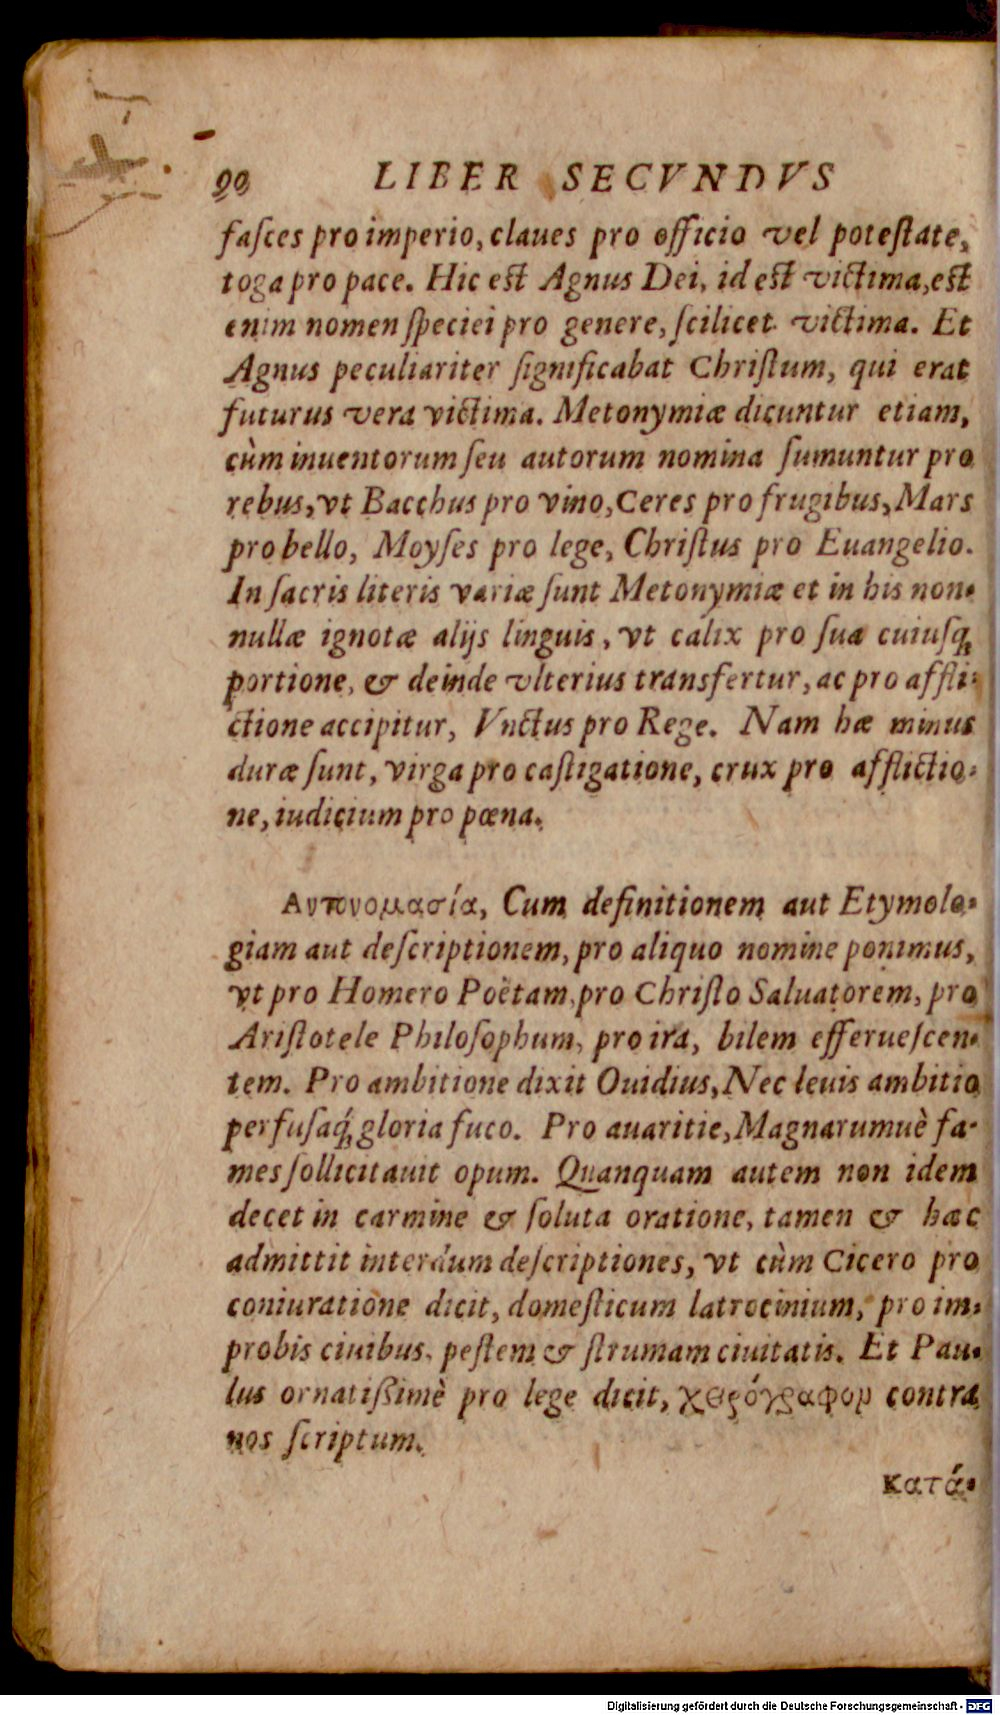 90 LIBER SECVNDVS
faſces pro imperio, claues pro officio vel poteſtate,
toga pro pace. Hic eſt Agnus Dei, id eſt victima, eſt
enim nomen ſpeciei pro genere, ſcilicet victima. Et
Agnus peculiariter ſignificabat Chriſtum, qui erat
futurus vera victima. Metonymiæ dicuntur etiam,
cùm inuentorum ſeu autorum nomina ſumuntur pro
rebus, vt Bacchus pro vino, Ceres pro frugibus, Mars
pro bello, Moyſes pro lege, Chriſtus pro Euangelio.
In ſacris literis variæ ſunt Metonymiæ et in his non-
nullæ ignotæ alijs linguis, vt calix pro ſua cuiuſq́;
portione, & deinde vlterius transfertur, ac pro affli-
ctione accipitur, Vnctus pro Rege. Nam hæ minus
duræ ſunt, virga pro caſtigatione, crux pro afflictio-
ne, iudicium pro pœna.
Αντονομασία, Cum definitionem aut Etymolo-
giam aut deſcriptionem, pro aliquo nomine ponimus,
vt pro Homero Poëtam, pro Chriſto Saluatorem, pro
Ariſtotele Philoſophum, pro ira, bilem efferueſcen-
tem. Pro ambitione dixit Ouidius, Nec leuis ambitio
perfuſaq́; gloria fuco. Pro auaritie, Magnarumuè fa-
mes ſollicitauit opum. Quanquam autem non idem
decet in carmine & ſoluta oratione, tamen & hæc
admittit interdum deſcriptiones, vt cùm Cicero pro
coniuratione dicit, domeſticum latrocinium, pro im-
probis ciuibus, peſtem & ſtrumam ciuitatis. Et Pau-
lus ornatißimè pro lege dicit, χειρόγραφομ contra
nos ſcriptum.
Κατά-
Digitalisierung gefördert durch die Deutsche Forschungsgemeinschaft - DFG